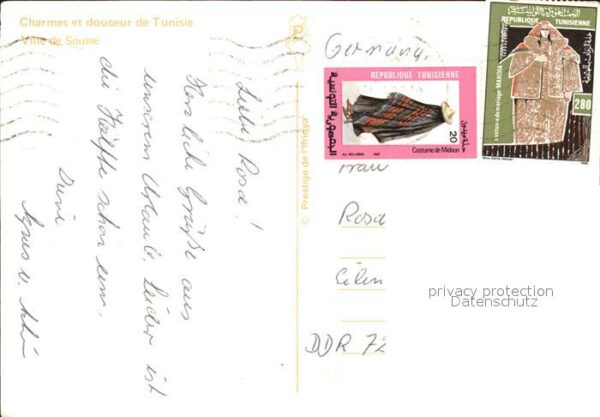 Charmes et douceur de Tunisie
Ville de Sousse
Liebe Rosa!
Herzliche Grüße aus
unserem Urlaub. Leider ist
die Hälfte schon um.
Deine
Agnes u.
© Prestige de l'Ifriqya
Germany.
REPUBLIQUE TUNISIENNE
الجمهورية التونسية
20
Costume de Midoun
REPUBLIQUE TUNISIENNE
280
Frau
Rosa
DDR 72
privacy protection
Datenschutz